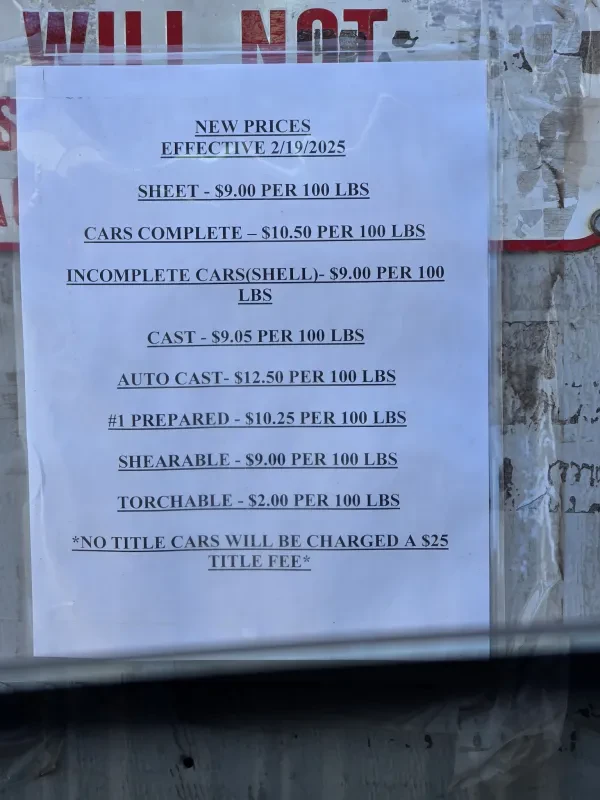 WILL NOT
NEW PRICES
EFFECTIVE 2/19/2025
SHEET - $9.00 PER 100 LBS
CARS COMPLETE – $10.50 PER 100 LBS
INCOMPLETE CARS(SHELL)- $9.00 PER 100
LBS
CAST - $9.05 PER 100 LBS
AUTO CAST- $12.50 PER 100 LBS
#1 PREPARED - $10.25 PER 100 LBS
SHEARABLE - $9.00 PER 100 LBS
TORCHABLE - $2.00 PER 100 LBS
*NO TITLE CARS WILL BE CHARGED A $25
TITLE FEE*